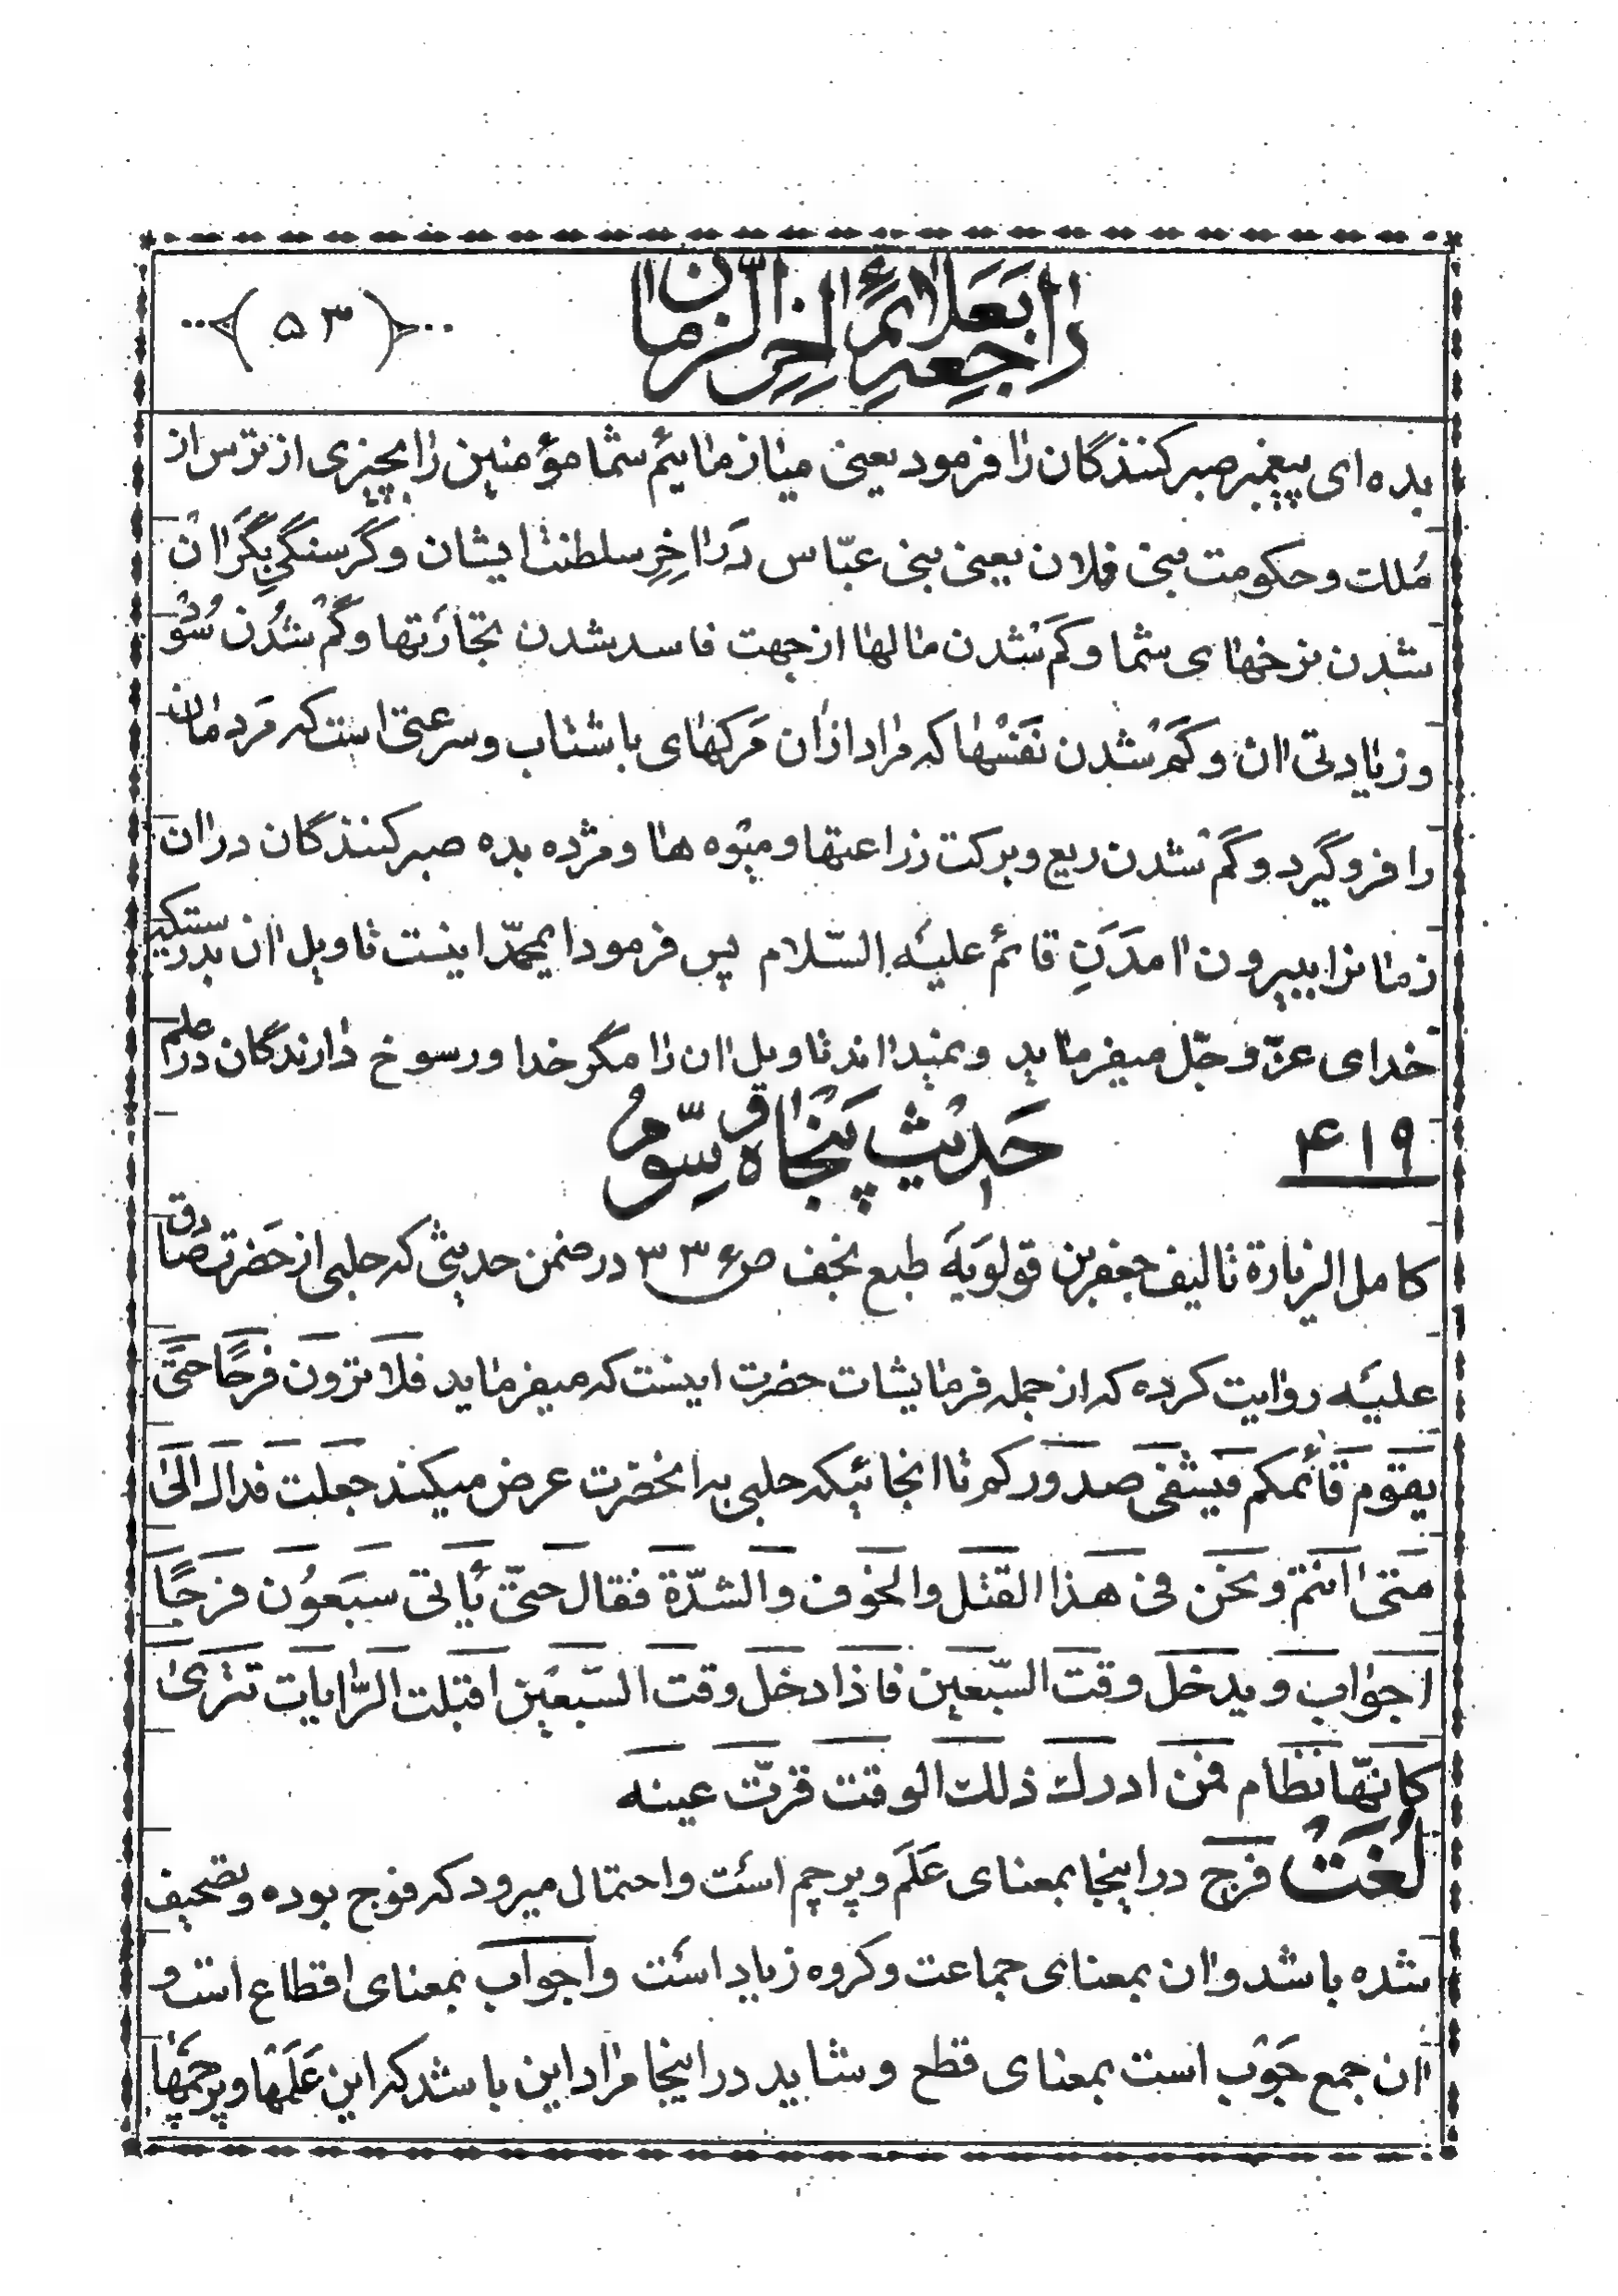 راجعه بعلائم اخر الزمان
(۵۳)
بده ای پیغمبر صبر کنندگان را فرمود یعنی میازمائیم شما مؤمنین را بچیزی از ترس از
ملك و حکومت بنی فلان یعنی بنی عبّاس دَر اخِرِ سلطنت ایشان و گرسنگیِ بِگَران
شدن نرخهای شما و کَم شدن مالها از جهت فاسد شدن تجارَتها و کَم شُدن سُوْ
و زیادتی ان و کَم شدن نَفَسْها که مراد ازان مَرکهای با شتاب و سرعتی است که مَردمان
را فرو گیرد و کَم شدن ریع و برکت زراعتها و میْوه ها و مژده بده صبر کنندگان در ان
زمانرا ببیرون امدَنِ قائم علیْه السّلام پس فرمود ایمحمّد اینست تاویل ان بدرستیکه
خدای عزّ و جّل میفرماید و نمیداند تاویل ان را مگر خدا و رسوخ دارندگان در علم
۴۱۹ حَدیْث پَنجاه و سِوّم
کامل الزیارة تالیف جعفر بن قولوَیه طبع نجف ص ۳۳۶ در ضمن حدیثی که حلبی از حَضرت صادق
علیْه روایت کرده که از جمله فرمایشات حضرت اینست که میفرماید فلا ترَون فرجًا حتّی
یقوم قائمکم فیشفی صدورکم تا انجائیکه حلبی بدانحضرت عرض میکند جعلت فداك الی
متی انتم و نحن فی هذا القتل والخوف والشدّة فقال حتّی یأتی سبعوُن فرجًا
اجواب و یدخل وقت السّبعین فاذا دخل وقت السّبعین اقبلت الرّایات تتری
کانّها نظام فمن ادرك ذلك الوقت قرّت عینه
لُغَتْ فرج در اینجا بمعنای عَلَم و پرچم اسْت و احتمال میرود که فوج بوده و تصحیف
شده باشد و ان بمعنای جماعت و کروه زیاد اسْت و اجواب بمعنای اقطاع است و
ان جمع جَوْب است بمعنای قطع و شاید در اینجا مراد این باشد که این عَلَمها و پرچمها